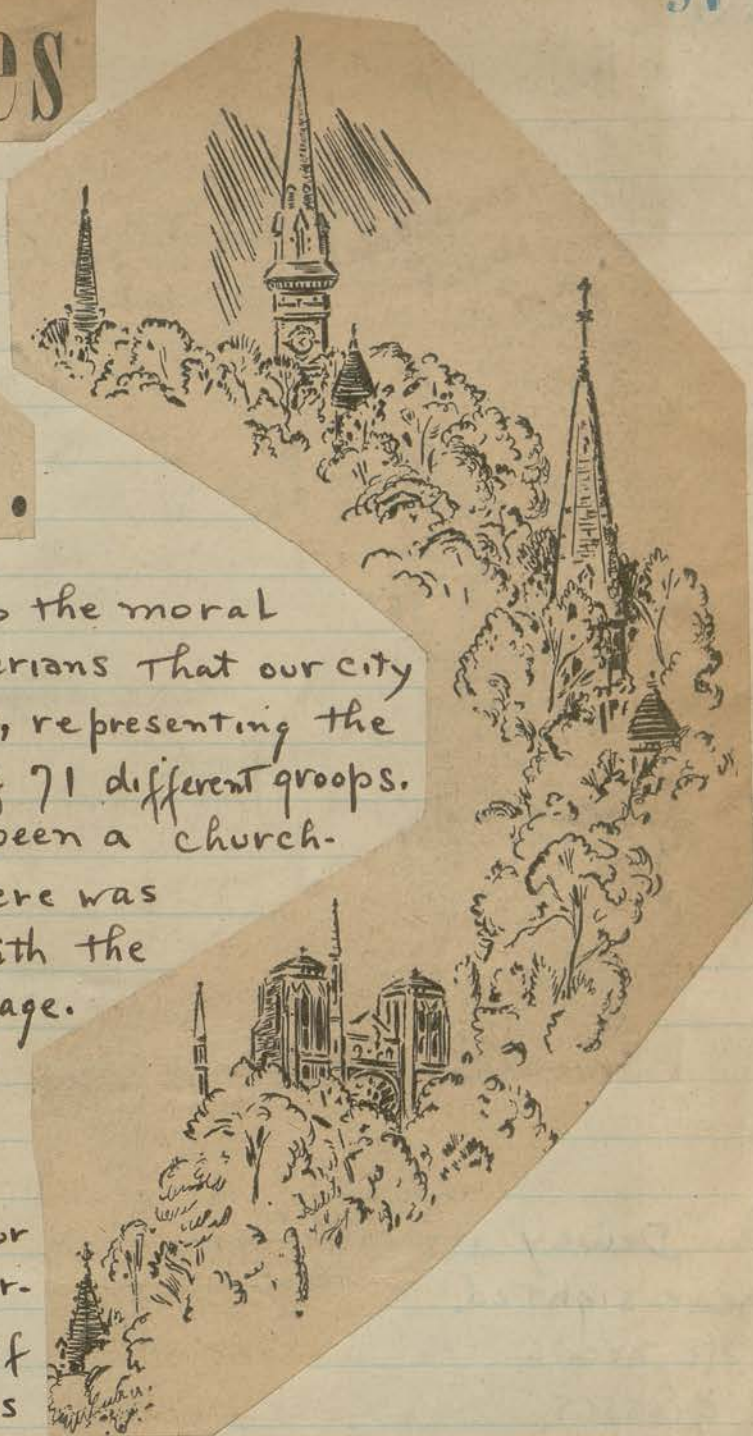 es
.
the moral
erians That our city
, representing the
71 different groops.
been a church-
ere was
ith the
age.
or
r-
f
s